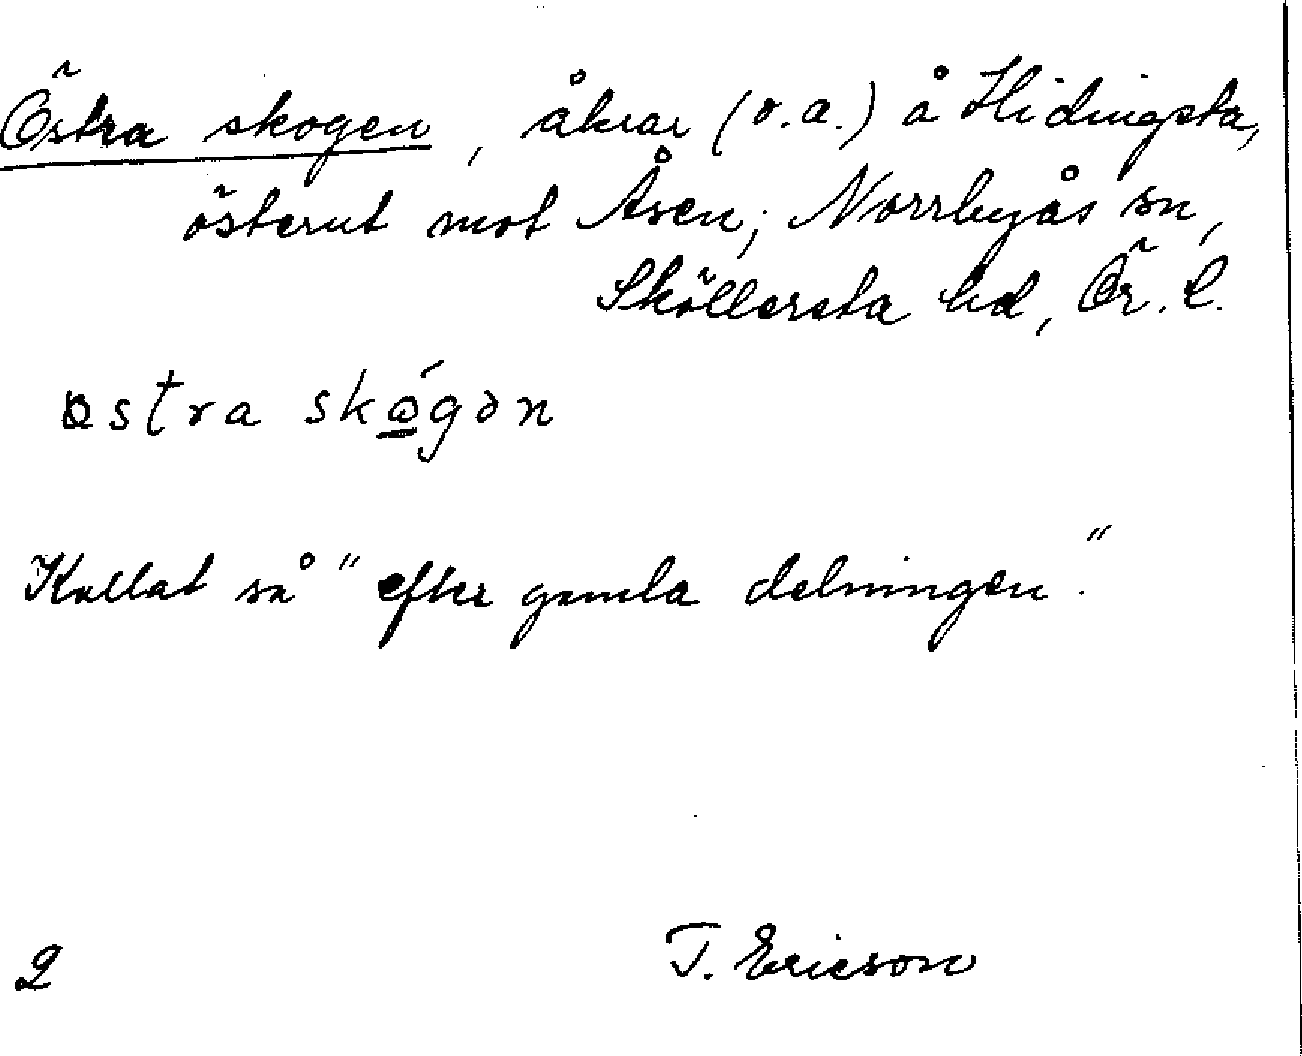 Östra skogen, åkrar (o.a.) å Hidingsta,
österut mot Åsen; Norrbyås sn,
Sköllersta hd, Ör. l.
östra skógən
Kallat så "efter gamla delningen".
2 T. Ericson